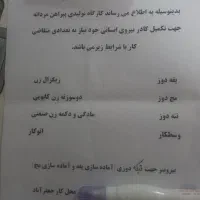 بدینوسیله به اطلاع می رساند کارگاه تولیدی پیراهن مردانه
جهت تکمیل کادر نیروی انسانی خود نیاز به تعدادی متقاضی
کار با شرایط زیر می باشد.
یقه دوز
زیگزال زن
مچ دوز
دوسوزنه زن کانوبی
تنه دوز
مادگی و دکمه زن صنعتی
وسطکار
اتوکار
نیرو در جهت دوزی آماده سازی یقه و آماده سازی مچ
محل کار جعفر آباد